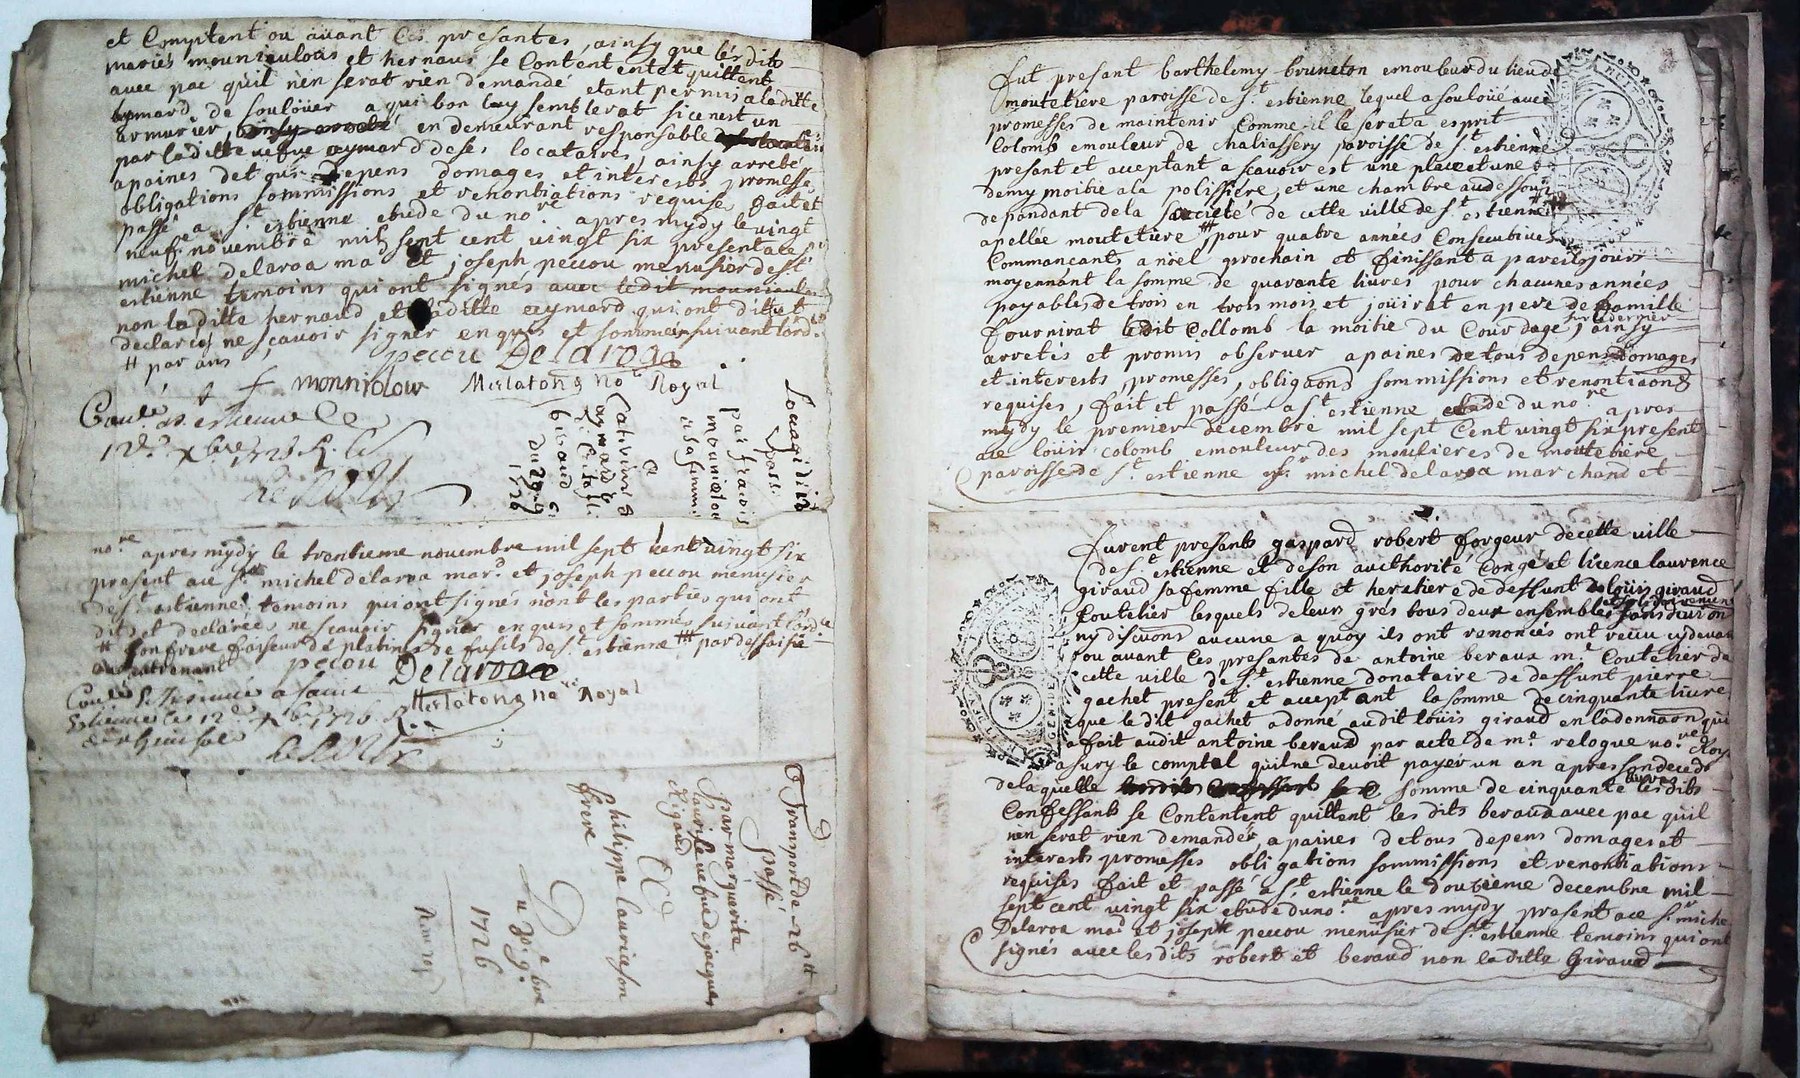 et Comptent ou avant Ces presantes, ainsy que lésdits
mariés mouniculous et hernaus se Content entet quittent
avec pac quil n'en serat rien demandé etant permis a laditte
eymard de soulöüer a qui bon luy semblerat si ce n'est un
armurier, en demeurant responsable
par laditte vefue eymard deses locataires, ainsy arrêté
apaines de tous depens domages et interests, promesses
obligations sommissions et renontiations requise fait et
passé a St estienne etude du nore apres mydy le vingt
neufe novembre mil sept cent vingt six present ace Sr
michel delaroa mar et joseph peccou menusier de St
estienne temoins qui ont signés avec ledit
non laditte hernaud et laditte eymard qui ont dit et
declarés ne scavoir signer enquis et sommés suivant lord.ce
# par ans
peccou Delaroa
monniolour Merlatong nore Royal
Conle as estienne le
12e xbre 1726 R.
Locaõn
passé
par francois
et sa femme
a
Catherine
eymard ve
du 29e 9bre
1726
nore apres mydy le trentieme novembre mil sept cent vingt six
present ace Sr michel delaroa mard et joseph peccou menusier
de St estienne temoins qui ont signés non les parties qui ont
dits et declarées ne scavoir signer enquis et sommés suivant lord.ce
# son frere faiseur de platines de fusils de St estienne ## par dessaisie
peccou Delaroa
Merlatong nore Royal
Estienne le 12e xbre 1726 R.
Transport de 26 #
passé
par margueritte
Laurie vefue de jacques
rigaud
a
philippe Laurieson
frere
Du 30e 9bre
1726
fut present barthelemy bruneton emouleur du lieu de
moutetiere paroisse de St estienne lequel a souloüé avec
promesses de maintenir Comme il le serat a esprit
Colomb emouleur de chaliassery paroisse de St estienne
present et acceptant a scavoir est une place et une
demy moitie a la polissiere, et une chambre au dessous
dependant de la Société de cette ville de St estienne
apellée moutetiere # pour quatre années Consecutives
Commancants a nöel prochain et finissant a pareils jours
moyennant la somme de quarante livres pour chacunes années
payables de trois en trois mois et joüirat en pere de famille
fournirat ledit Collomb la moitie du Courdage, ainsy
sur le dernier
arretés et promis observer apaines de tous depens domages
et interests, promesses, obligaons sommissions et renontiaons
requises, fait et passé a St estienne etude du nore apres
mydy le premier decembre mil sept Cent vingt six present
ace loüis colomb emouleur des moulieres de moutetiere
paroisse de St estienne Sr michel delaroa marchand et
furent presents gaspard robert forgeur de cette ville
de St estienne et de son authorité Congé et licence laurence
giraud sa femme fille et heretiere de deffunt loüis giraud
Coutelier lesquels de leurs grés tous deux ensembles sans division
ny discuons aucune a quoy ils ont renoncés ont receu cy devant
ou avant Ces presantes de antoine beraux me Coutelier de
cette ville de St estienne donataire de deffunt pierre
gachet present et acceptant la somme de cinquante livres
que le dit gachet a donné audit loüis giraud en la donnaon qu'il
a fait audit antoine beraud par acte de me relogue nore Royal
a sury le comptal qu'il ne devoit payer un an apres son decedz
de laquelle somme de cinquante livres lesdits
Confessants se Contentent quittent les dits beraud avec pac quil
n'en serat rien demander, apaines de tous depens domages et
interests promesses obligations sommissions et renontiations
requises fait et passé a St estienne le doutieme decembre mil
sept cent vingt six etude du nore apres mydy present ace Sr michel
Delaroa mard et joseph peccou menusier de St estienne temoins qui ont
signés avec lesdits robert et beraud non laditte Giraud